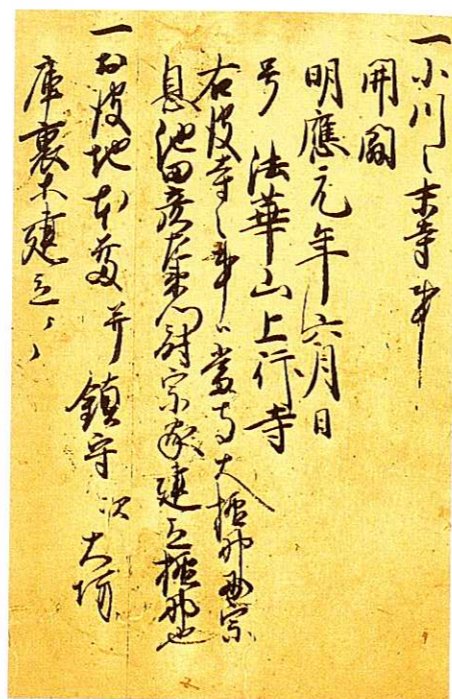 一小川之末寺事
開闢
明應元年六月日
号 法華山上行寺
右彼寺之事ハ當寺大檀那宗
息池田彦左衛門尉宗家建立檀那也
一右彼地本堂并鎮守次大坊
庫裏等建立之